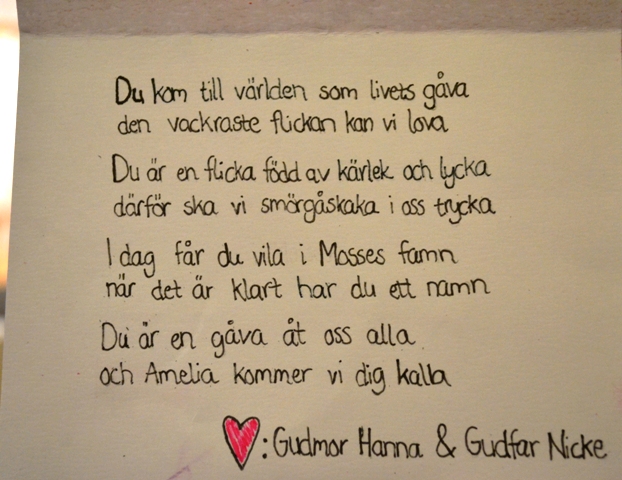 Du kom till världen som livets gåva
den vackraste flickan kan vi lova
Du är en flicka född av kärlek och lycka
därför ska vi smörgåskaka i oss trycka
I dag får du vila i Mosses famn
när det är klart har du ett namn
Du är en gåva åt oss alla
och Amelia kommer vi dig kalla
: Gudmor Hanna & Gudfar Nicke